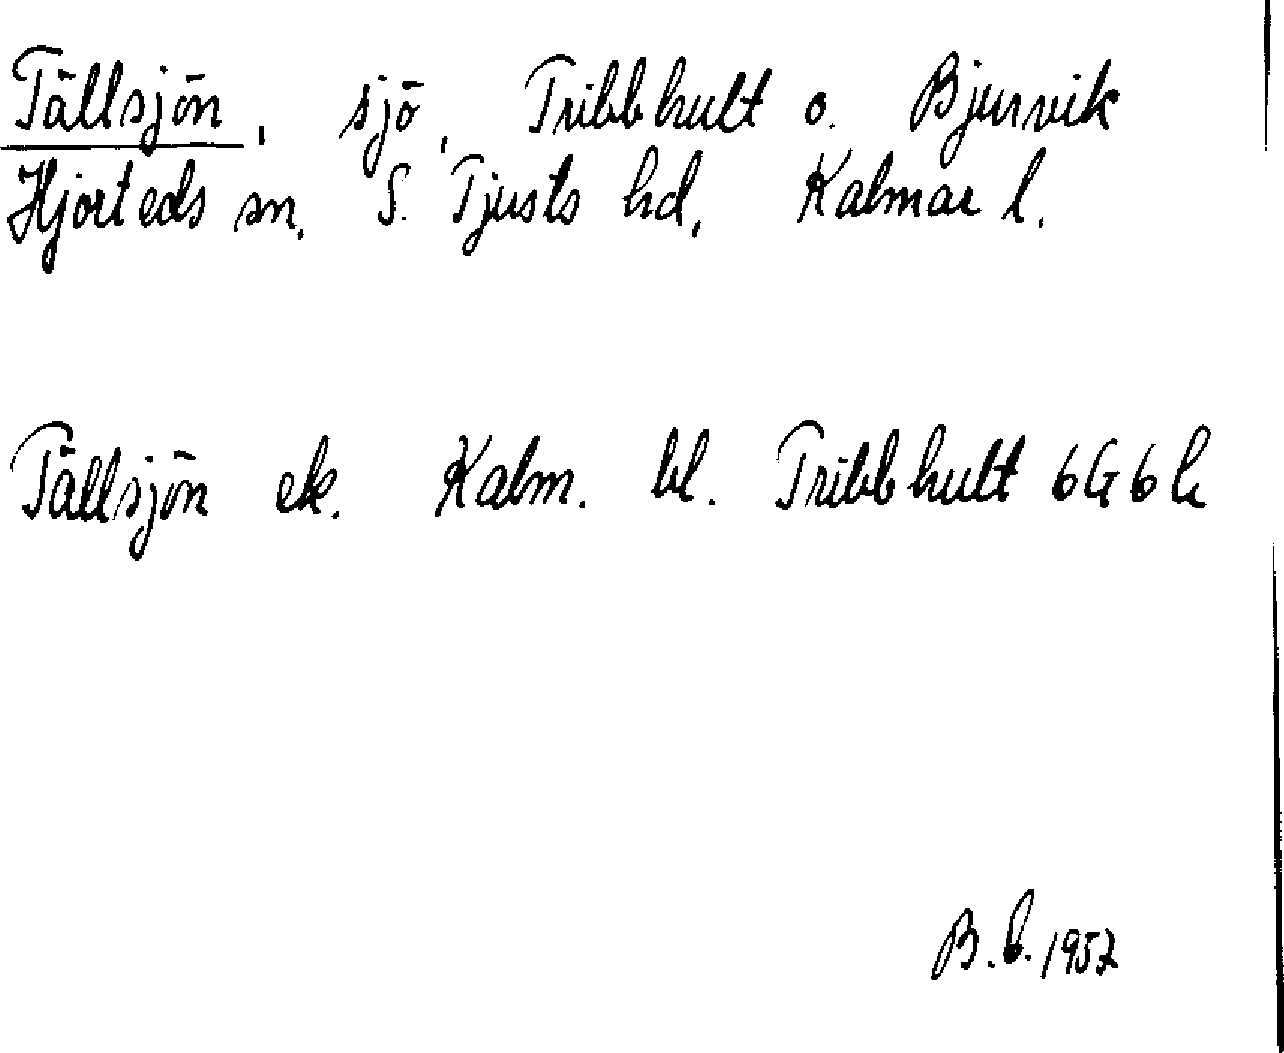 Tällsjön, sjö, Tribbhult o. Bjurvik
Hjorteds sn, S. Tjusts hd, Kalmar l.
Tällsjön ek. Kalm. bl. Tribbhult 6G6h
B.L. 1957